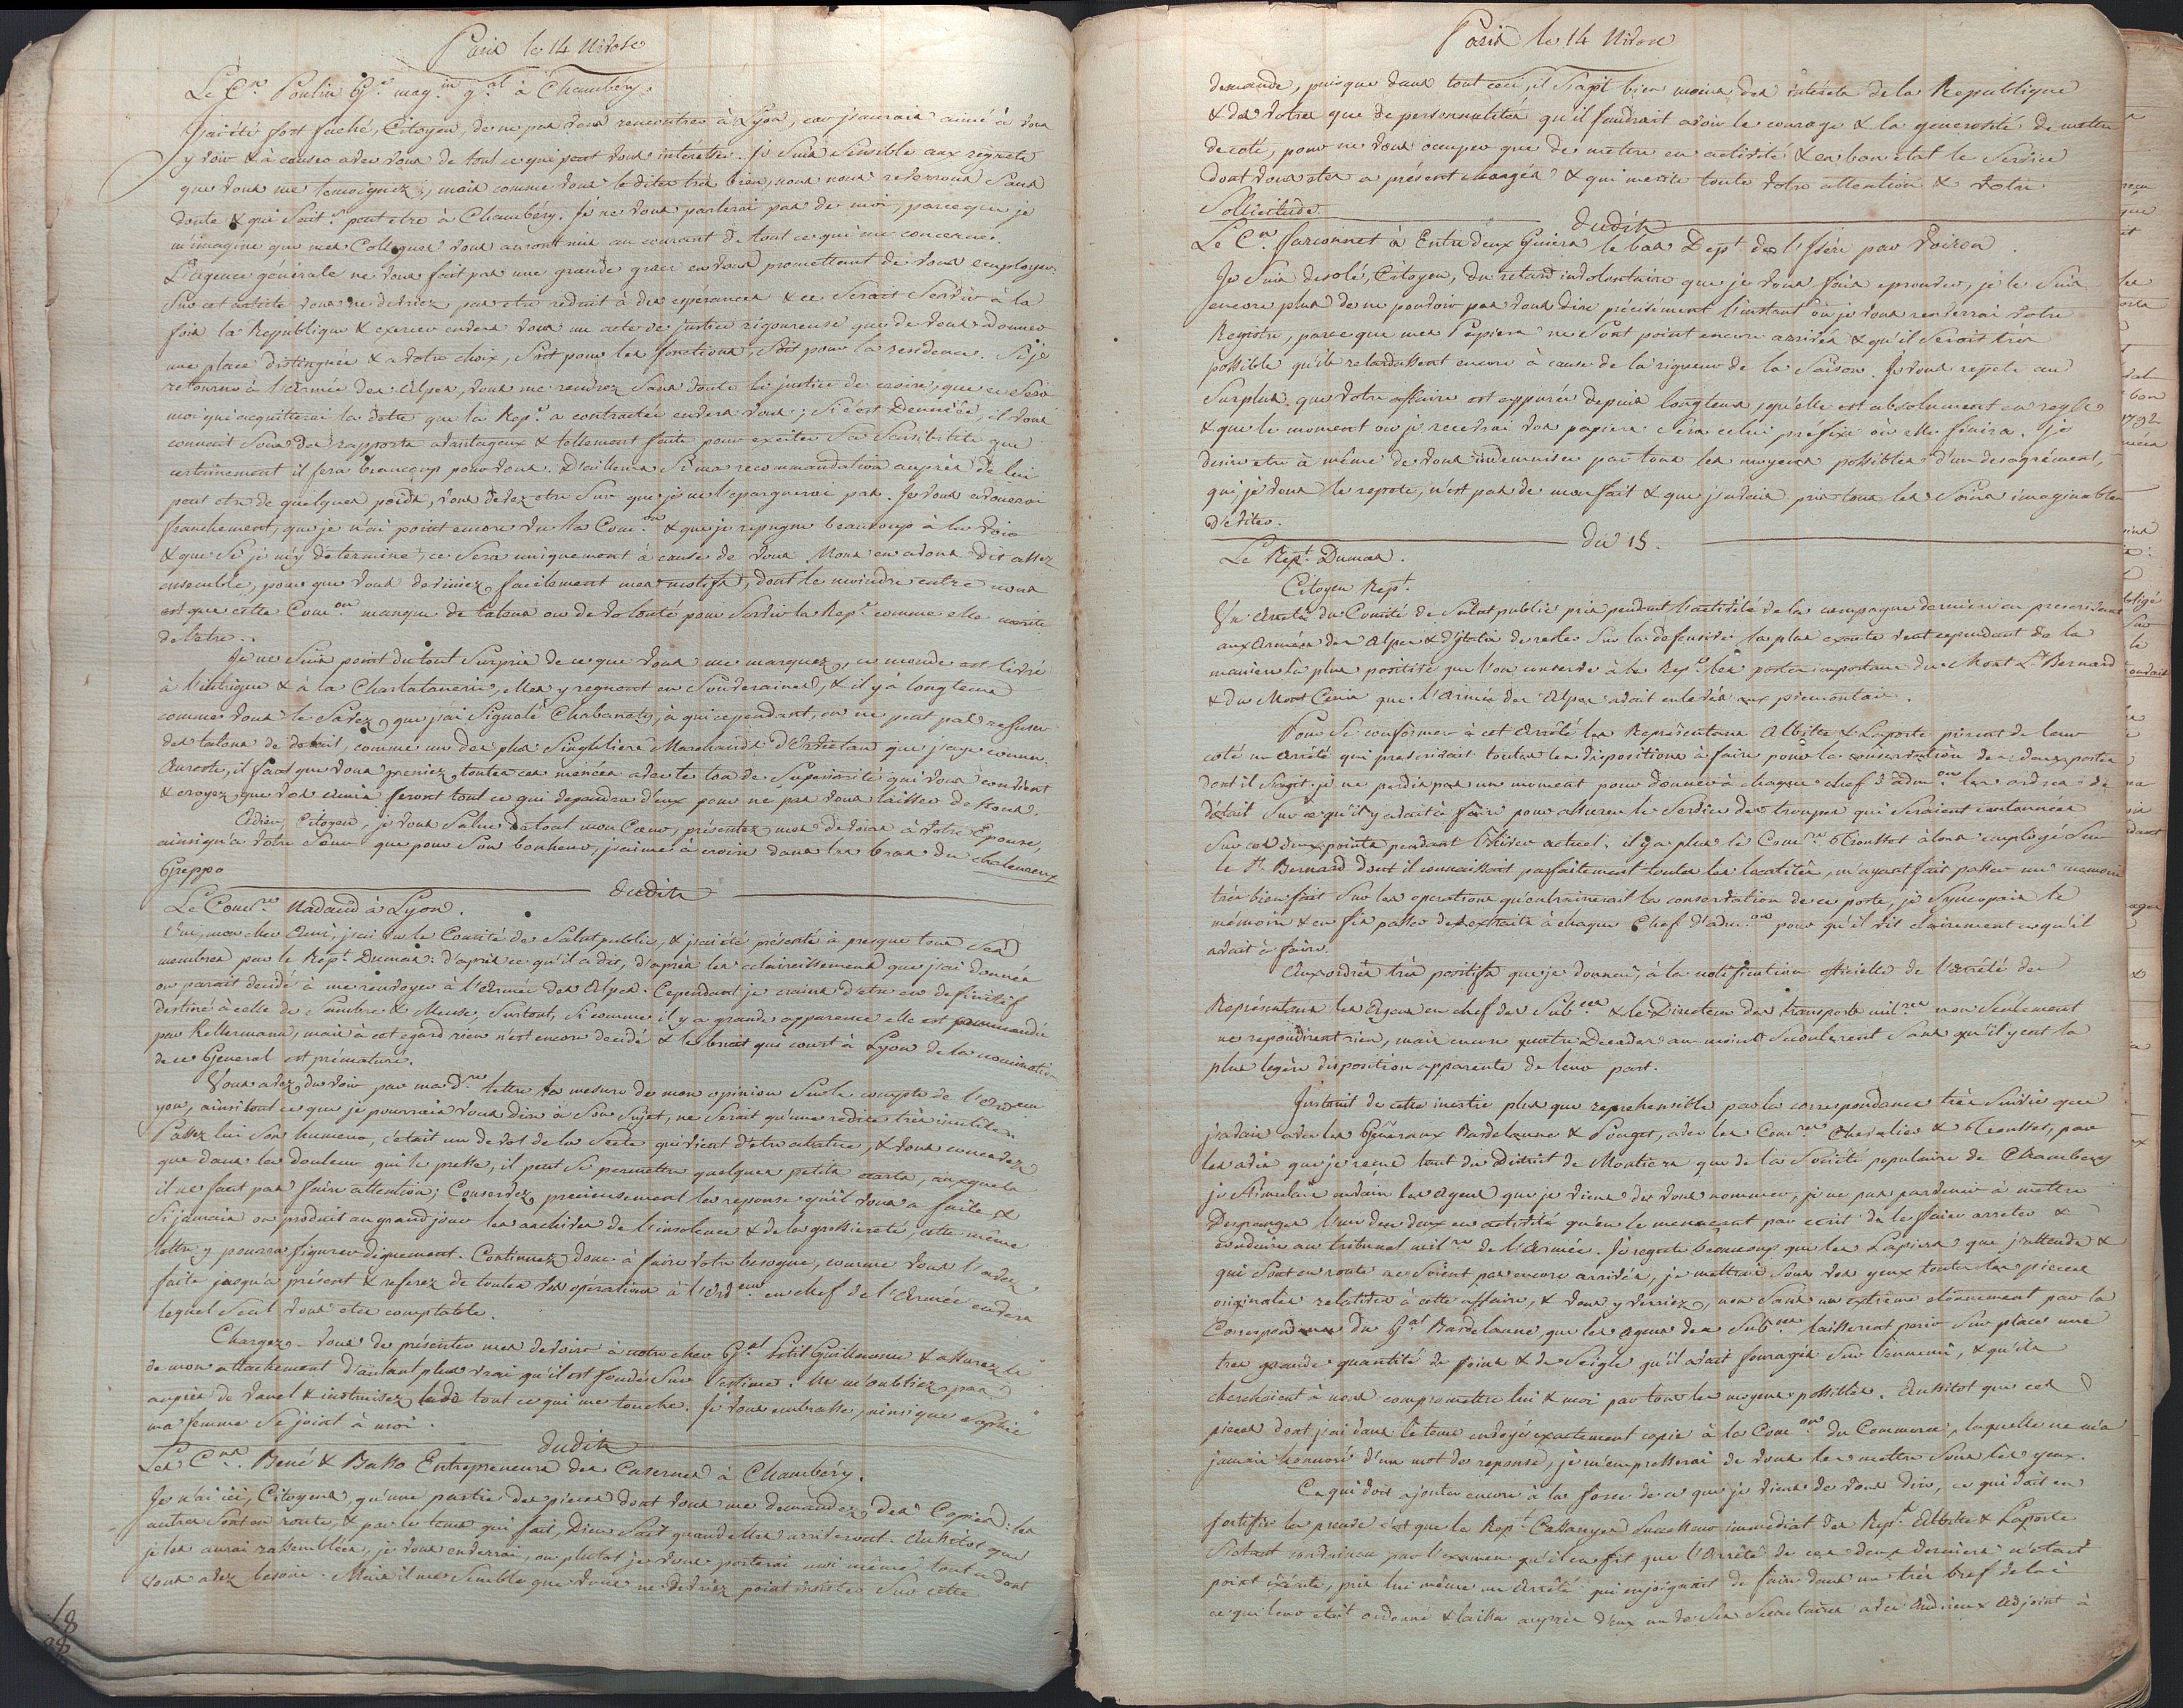 Paris le 14 Nivose
Le C.en Poulin G.e mag.in g.al à Chambéry.
J'ai été fort faché, Citoyen, de ne pas vous rencontrer à Lyon, car j'aurais aimé à vous
y voir & à causer avec vous de tout ce qui peut vous interesser. Je suis sensible aux regrets
que vous me temoignez, mais comme vous le dites très bien, nous nous reverrons sans
doute & qui sait? peut etre à Chambéry. Je ne vous parlerai pas de moi, parce que je
m'imagine que mes Collegues vous auront mis au courant de tout ce qui me concerne.
L'agence générale ne vous fait pas une grande grace en vous promettant de vous employer.
Sur cet article vous ne devriez pas etre reduit à des espérances & ce serait servir à la
fois la Republique & exercer envers vous un acte de justice rigoureuse que de vous donner
une place distinguée & a votre choix, soit pour les fonctions, soit pour la residence. Si je
retourne à l'armée des Alpes, vous me rendrez sans doute la justice de croire, que ce sera
moi qui acquitterai la dette que la Rep.e a contractée envers vous; si c'est Denniée, il vous
connait sous des rapports avantageux & tellement faits pour exciter sa sensibilité que
certainement il fera beaucoup pour vous. D'ailleurs si ma recommandation auprès de lui
peut etre de quelques poids, vous devez etre sur que je ne l'epargnerai pas. Je vous avouerai
franchement, que je n'ai point encore vu la Com.on & que je repugne beaucoup à la voir
& que si je m'y determine, ce sera uniquement à cause de vous. Nous en avons dit assez
ensemble, pour que vous deviniez facilement mes motifs, dont le moindre entre nous
est que cette Com.on manque de talens ou de volonté pour servir la Rep.e comme elle mérite
de l'etre.
Je ne suis point du tout surpris de ce que vous me marquez, ce monde est livré
à l'intrigue & à la Charlatanerie, elles y regnent en souveraines, & il y a longtems
comme vous le savez que j'ai signalé Chabanety, à qui cependant, on ne peut pas refuser
des talens de detail, comme un des plus singuliers Marchands d'Orvietan que j'aye connu.
Au reste, il faut que vous preniez toutes ces menées avec le ton de supériorité qui vous convient
& croyez que vos amis feront tout ce qui dependra d'eux pour ne pas vous laisser dessous.
Adieu, Citoyen, je vous salue de tout mon Cœur, présentez mes devoirs à votre Epouse,
ainsi qu'à votre Sœur que pour son bonheur, j'aime à croire dans les bras du chaleureux
Greppo
dudit
Le Com.re Nadaud à Lyon.
mon cher Ami, j'ai vu le Comité de Salut public, & j'ai été présenté à presque tous ses
membres par le Rep.t Dumas: d'après ce qu'il a dit, d'après les eclaircissemens que j'ai donnés
on parait decidé à me renvoyer à l'Armée des Alpes. Cependant je crains d'etre en definitif
destiné à celle de Sambre & Meuse, surtout, si comme il y a grande apparence elle est commandée
par Kellermann, mais à cet egard rien n'est encore decidé & le bruit qui court à Lyon de la nomination
de ce Général est prématuré.
Vous avez du voir par ma d.re lettre la mesure de mon opinion sur le compte de l'Ord.eur
yon, ainsi tout ce que je pourrais vous dire à son sujet, ne serait qu'une redite très inutile.
Passez lui son humeur, c'était un devot de la Secte qui vient d'etre abattue, & vous concevez
que dans la douleur qui le presse, il peut se permettre quelques petits ecarts, auxquels
il ne faut pas faire attention; Conservez precieusement la reponse qu'il vous a faite &
si jamais on produit au grand jour les archives de l'insolence & de la grossiereté, cette même
lettre y pourra figurer dignement. Continuez donc à faire votre besogne, comme vous l'avez
faite jusqu'à présent & referez de toutes vos opérations à l'ord.eur en chef de l'Armée envers
lequel seul vous etes comptable.
Chargez-vous de présenter mes devoirs à notre cher G.al Petit Guillaume & assurez le
de mon attachement d'autant plus vrai qu'il est fondé sur l'estime. Ne m'oubliez pas
auprès de Vanel & instruisez le de tout ce qui me touche. Je vous embrasse, ainsi que Sophie
ma femme se joint à moi.
dudit
Les C.ens René & Basso Entrepreneurs des Casernes à Chambéry.
Je n'ai ici, Citoyens, qu'une partie des pieces dont vous me demandez des Copies: les
autres sont en route, & par le tems qui fait, Dieu sait quand elles arriveront. Aussitot que
je les aurai rassemblées, je vous enverrai, ou plutot je vous porterai moi même, tout ce dont
vous avez besoin. Mais il me semble que vous ne devriez point insister sur cette
18
Paris le 14 Nivose
demande, puisque dans tout ceci, il s'agit bien moins des intérets de la Republique
& des votres que de personnalités qu'il faudrait avoir le courage & la generosité de mettre
de coté, pour ne vous occuper que de mettre en activité & en bon etat le service
dont vous etes a présent chargés & qui merite toute votre attention & votre
Sollicitude.
dudit
Le C.en Farconnet à Entre deux Guiers le bas Dep.t de l'Isère par Voiron.
Je suis desolé, Citoyen, du retard involontaire que je vous fais eprouver, je le suis
encore plus de ne pouvoir pas vous dire précisément l'instant où je vous renverrai votre
Registre, parce que mes Papiers ne sont point encore arrivés & qu'il serait très
possible qu'ils retardassent encore à cause de la rigueur de la saison. Je vous repete au
surplus que votre affaire est appurée depuis longtems, qu'elle est absolument en regle
& que le moment où je recevrai vos papiers sera celui préfixe où elle finira. Je
desire etre à même de vous indemniser par tous les moyens possibles d'un desagrément,
qui je vous le repete, n'est pas de mon fait & que j'avais pris tous les soins imaginables
d'eviter.
du 15.
Le Rep.t Dumas.
Citoyen Rep.t
Un Arreté du Comité de Salut public pris pendant l'activité de la campagne derniere en prescrivant
aux Armées des Alpes & d'Italie de rester sur la défensive la plus exacte veut cependant de la
maniere la plus positive que l'on conserve à la Rep.e les postes importans du Mont S.t Bernard
& du Mont Cenis que l'Armée des Alpes avait enlevés aux piemontais.
Pour se conformer à cet Arrêté les Représentans Albitte & Laporte prirent de leur
coté un Arrêté qui prescrivait toutes les dispositions à faire pour la conservation des deux postes
dont il s'agit. je ne perdis pas un moment pour donner à chaque chef d'adm.on les ordres de
détail sur ce qu'il y avait à faire pour assurer le service des troupes qui seraient cantonnées
sur ces deux points pendant l'hiver actuel. il y a plus le Com.re Trousset alors employé sur
le S.t Bernard dont il connaissait parfaitement toutes les localités, m'ayant fait passer un memoire
très bien fait sur les operations qu'entrainerait la conservation de ce poste, je syncopais le
mémoire & en fis passer des extraits à chaque Chef d'adm.on pour qu'il vit clairement ce qu'il
avait à faire.
Aux ordres très positifs que je donnai, à la notification officielle de l'arrêté des
Représentans les Agens en chef des Sub.ces & le Directeur des transports mil.res non seulement
ne repondirent rien, mais encore quatre decades au moins s'ecoulerent sans qu'il y eut la
plus legère disposition apparente de leur part.
Instruit de cette inertie plus que reprehensible par la correspondance très suivie que
j'avais avec les Généraux Bardelaune & Pouget, avec les Com.res Chevalier & Trousset, par
les avis que je reçus tant du District de Moutiers que de la Société populaire de Chambery
je stimulai en vain les Agens que je viens de vous nommer, je ne pus parvenir à mettre
Desgranges l'un des deux en activité qu'en le menaçant par ecrit de le faire arreter &
conduire au tribunal mil.re de l'Armée. Je regrete beaucoup que les Papiers que j'attends &
qui sont en route ne soient pas encore arrivés, je mettrais sous vos yeux toutes les pieces
originales relatives à cette affaire, & vous y verriez, non sans un extrême étonnement par la
Correspondance du G.al Bardelaune, que les agens des Sub.ces laisserent perir sur place une
tres grande quantité de foins & de Seigle qu'il avait fourragés sur l'ennemi, & qu'ils
cherchaient à nous compromettre lui & moi par tous les moyens possibles. Aussitot que ces
pieces dont j'ai dans le tems envoyé exactement copie à la Com.on du Commerce, laquelle ne m'a
jamais honoré d'un mot de reponse, je m'empresserai de vous les mettre sous les yeux.
Ce qui doit ajouter encore à la force de ce que je viens de vous dire, ce qui doit en
fortifier la preuve c'est que le Rep.t Cassanyes Successeur immediat des Rep.s Albitte & Laporte
s'etant convaincu par l'examen qu'il en fit que l'Arrêté de ces deux derniers n'etait
point exécuté, prit lui même un Arrêté qui enjoignait de faire dans un très bref delai
ce qui leur etait ordonné & laissa auprès d'eux un de ses Secretaires avec Andrieux Adjoint à